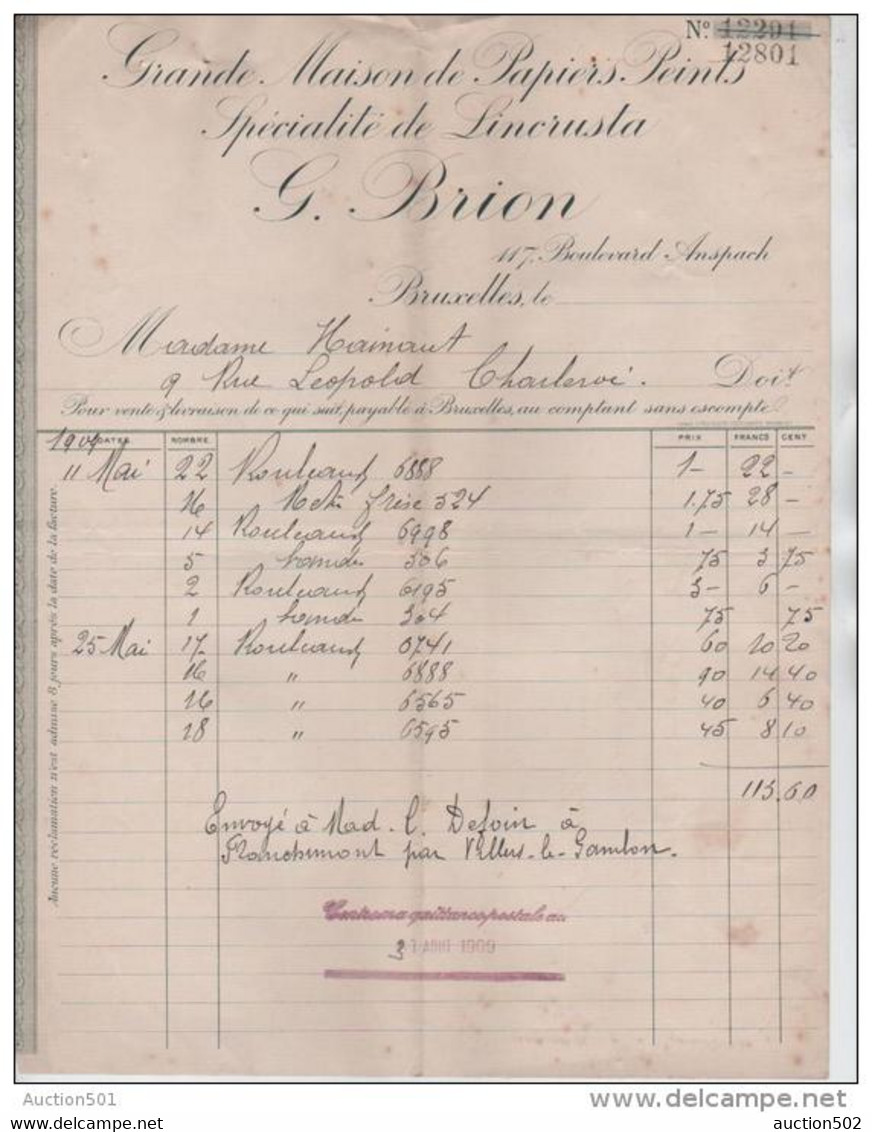 N° 12291
12801
Grande Maison de Papiers Peints
Spécialité de Lincrusta
G. Brion
117, Boulevard Anspach
Bruxelles, le
Madame Hainaut
9 Rue Leopold Charleroi. Doit
Pour vente & livraison de ce qui suit, payable à Bruxelles, au comptant sans escompte
1909 DATES NOMBRE PRIX FRANCS CENT
11 Mai 22 Rouleaux 6888 1- 22 -
16 frise 524 1.75 28 -
14 Rouleaux 6998 1- 14 -
5 bandes 306 75 3 75
2 Rouleaux 6195 3- 6 -
1 bande 304 75 75
25 Mai 17 Rouleaux 0741 60 10 20
16 " 6888 90 14 40
16 " 6565 40 6 40
18 " 6595 45 8 10
113.60
Envoyé à Mad. C. Defoin à
Franchimont par Villers-le-Gambon.
Contre ma quittance postale au
31 AOUT 1909
Aucune réclamation n'est admise 8 jours après la date de la facture.
Auction501
delcampe.net
auction502